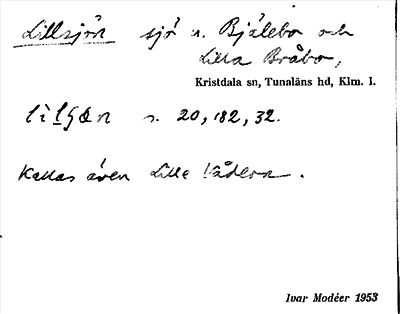 Lillsjön sjö n. Bjälebo och
Lilla Bråbo,
Kristdala sn, Tunaläns hd, Klm. l.
20, 182, 32.
Kallas även Lilla
Ivar Modéer 1953